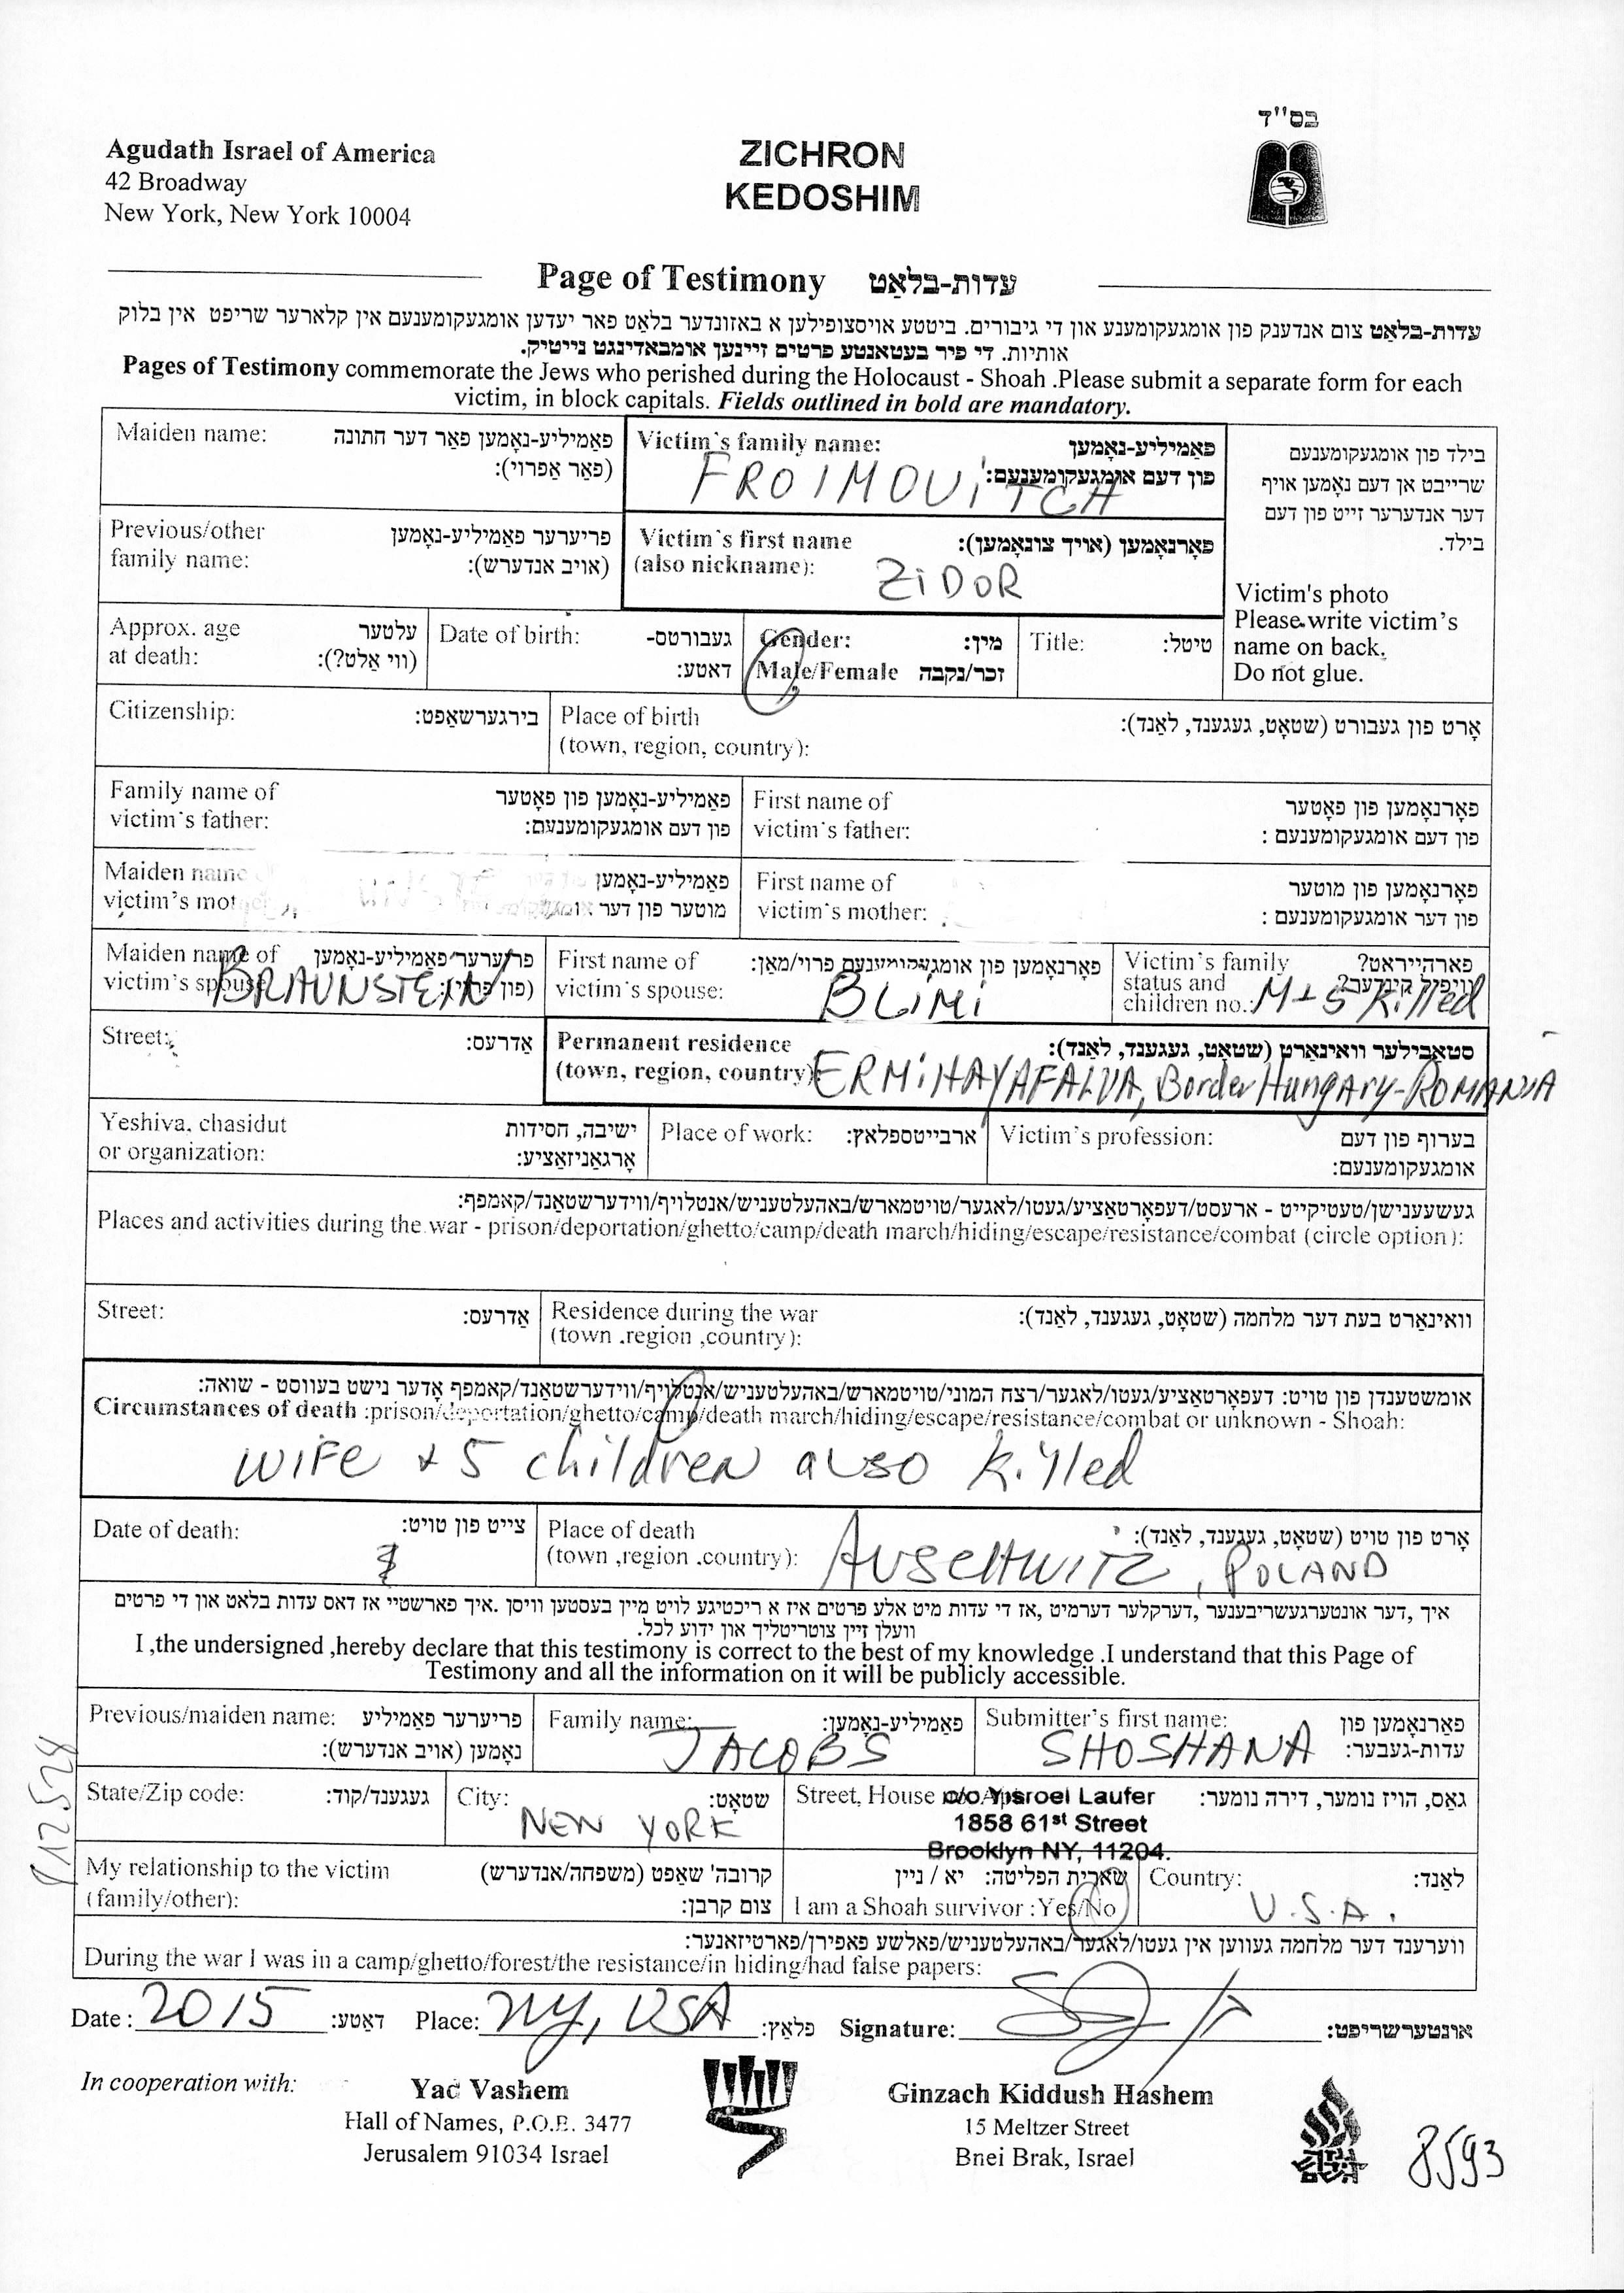 בס"ד
Agudath Israel of America
42 Broadway
New York, New York 10004
ZICHRON
KEDOSHIM
Page of Testimony עדות-בלאַט
עדות-בלאַט צום אנדענק פון אומגעקומענע און די גיבורים. ביטטע אויסצופילען א באזונדער בלאַט פאר יעדען אומגעקומענעם אין קלארער שריפט אין בלוק
אותיות. די פיר בעטאנטע פרטים זיינען אומבאדינגט נייטיק.
Pages of Testimony commemorate the Jews who perished during the Holocaust - Shoah .Please submit a separate form for each
victim, in block capitals. Fields outlined in bold are mandatory.
Maiden name: פאַמיליע-נאָמען פאַר דער חתונה
(פאַר אַפרוי):
Victim's family name: פאַמיליע-נאָמען
פון דעם אומגעקומענעם:
FROIMOVITCH
בילד פון אומגעקומענעם
שרייבט אן דעם נאָמען אויף
דער אנדערער זייט פון דעם
בילד.
Victim's photo
Please write victim's
name on back.
Do not glue.
Previous/other פריערער פאַמיליע-נאָמען
family name: (אויב אנדערש):
Victim's first name פאָרנאָמען (אויך צונאָמען):
(also nickname):
ZIDOR
Approx. age עלטער
at death: (ווי אַלט?):
Date of birth: געבורטס-
דאטע:
Gender: מין:
Male/Female זכר/נקבה
Title: טיטל:
Citizenship: בירגערשאַפט:
Place of birth אָרט פון געבורט (שטאָט, געגענד, לאַנד):
(town, region, country):
Family name of פאַמיליע-נאָמען פון פאָטער
victim's father: פון דעם אומגעקומענעם:
First name of פאָרנאָמען פון פאָטער
victim's father: פון דעם אומגעקומענעם :
Maiden name פאַמיליע-נאָמען
victim's מוטער פון דער
First name of פאָרנאָמען פון מוטער
victim's mother: פון דער אומגעקומענעם :
Maiden name of פריערער פאַמיליע-נאָמען
victim's spouse (פון
BRAUNSTEIN
First name of פאָרנאָמען פון אומגעקומענעם פרוי/מאַן:
victim's spouse:
BLIMI
Victim's family פארהייראט?
status and וויפיל קינדער?
children no.: M + 5 killed
Street: אַדרעס:
Permanent residence סטאַבילער וואוינאָרט (שטאָט, געגענד, לאַנד):
(town, region, country): ERMIHAYAFALVA, Border Hungary-ROMANIA
Yeshiva, chasidut ישיבה, חסידות
or organization: אָרגאַניזאַציע:
Place of work: ארבייטספלאץ:
Victim's profession: בערוף פון דעם
אומגעקומענעם:
געשעענישן/טעטיקייט - ארעסט/דעפאָרטאַציע/געטו/לאגער/טויטמארש/באהעלטעניש/אנטלויף/ווידערשטאַנד/קאמפף:
Places and activities during the war - prison/deportation/ghetto/camp/death march/hiding/escape/resistance/combat (circle option):
Street: אַדרעס:
Residence during the war וואוינאָרט בעת דער מלחמה (שטאָט, געגענד, לאַנד):
(town .region ,country):
אומשטענדן פון טויט: דעפאָרטאַציע/געטו/לאגער/רצח המוני/טויטמארש/באהעלטעניש/אנטלויף/ווידערשטאַנד/קאמפף אָדער נישט בעווסט - שואה:
Circumstances of death :prison/deportation/ghetto/camp/death march/hiding/escape/resistance/combat or unknown - Shoah:
WIFE + 5 children also killed
Date of death: צייט פון טויט:
Place of death אָרט פון טויט (שטאָט, געגענד, לאַנד):
(town ,region .country): AUSCHWITZ, POLAND
איך ,דער אונטערגעשריבענער ,דערקלער דערמיט ,אז די עדות מיט אלע פרטים איז א ריכטיגע לויט מיין בעסטען וויסן .איך פארשטיי אז דאס עדות בלאט און די פרטים
וועלן זיין צוטריטליך און ידוע לכל.
I ,the undersigned ,hereby declare that this testimony is correct to the best of my knowledge .I understand that this Page of
Testimony and all the information on it will be publicly accessible.
Previous/maiden name: פריערער פאַמיליע
נאָמען (אויב אנדערש):
Family name: פאַמיליע-נאָמען:
JACOBS
Submitter's first name: פאָרנאָמען פון
עדות-געבער:
SHOSHANA
State/Zip code: געגענד/קוד:
City: שטאָט:
NEW YORK
Street, House גאַס, הויז נומער, דירה נומער:
c/o Yisroel Laufer
1858 61st Street
Brooklyn NY, 11204.
My relationship to the victim קרובה' שאַפט (משפחה/אנדערש)
(family/other): צום קרבן:
שארית הפליטה: יא / ניין
I am a Shoah survivor :Yes/No
Country: לאַנד:
U.S.A.
ווערענד דער מלחמה געווען אין געטו/לאגער/באהעלטעניש/פאלשע פאפירן/פארטיזאנער:
During the war I was in a camp/ghetto/forest/the resistance/in hiding/had false papers:
Date : 2015 דאַטע: Place: NY, USA פלאַץ: Signature: אונטערשריפט:
In cooperation with:
Yad Vashem
Hall of Names, P.O.B. 3477
Jerusalem 91034 Israel
Ginzach Kiddush Hashem
15 Meltzer Street
Bnei Brak, Israel
8593